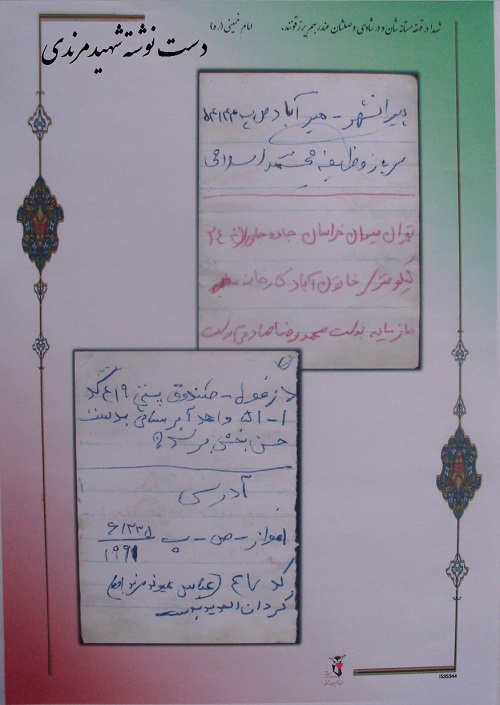 شهدا در قهقهه مستانه‌شان و در شادی وصولشان عند ربهم یرزقونند. امام خمینی (ره)
دست نوشته شهید مرندی
پیرانشهر - میرآباد ص پ
سرباز وظیفه محمد اسلامی
تهران میدان خراسان جاده خاوران ۲۴
کیلومتری خاتون آباد کارخانه
مازیانه بدست محمدرضا صادقی
دزفول - صندوق پستی ۶۱۹ کد
۵۱-۱ واحد آبرسانی بدست
حسن بخشی برسد
آدرس
اهواز - ص - پ ۶۱۳۳۵
۱۹۹۱
کد
گردان
1525344